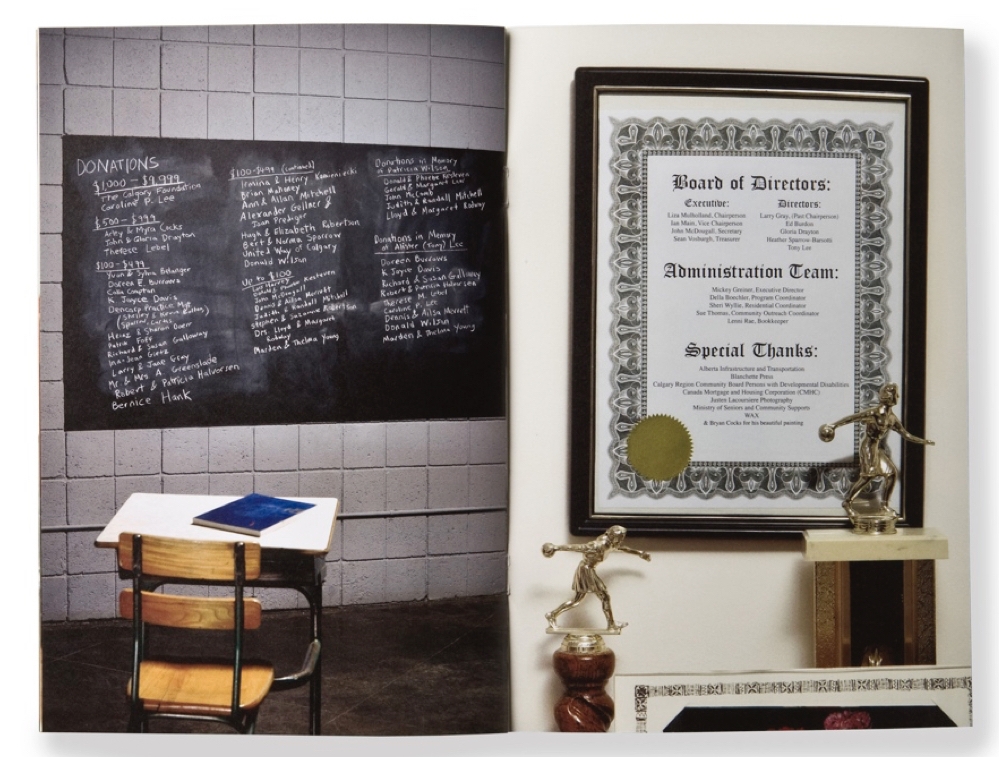 DONATIONS
$1,000 - $9,999
The Calgary Foundation
Caroline P. Lee
$500 - $999
Arley & Myra Cocks
John & Gloria Drayton
Therese Lebel
$100 - $499
Yvan & Sylvia Belanger
Doreen E. Burrows
Colla Compton
K Joyce Davis
Heinz & Sharon Doerr
Patrick Foff
Richard & Susan Galloway
Larry & Jane Gray
Mr & Mrs A. Greenslade
Robert & Patricia Halvorsen
Bernice Hank
$100-$499 (continued)
Irmina & Henry Kominiecki
Brian Mahoney
Ann & Allan Mitchell
Alexander Gellner &
Joan Prediger
Hugh & Elizabeth Robertson
Bert & Norma Sparrow
United Way of Calgary
Donald Wilson
Up to $100
John McDougall
Dennis & Ailsa Merrett
Judith & Randall Mitchell
Stephen & Suzanne Robertson
Drs. Lloyd & Margaret
Rodway
Marden & Thelma Young
Donations in Memory
of Patricia Wilson
Donald & Phoebe Kesteven
Gerald & Margaret Lee
John McComb
Judith & Randall Mitchell
Lloyd & Margaret Rodway
Donations in Memory
of Allister (Tony) Lee
Doreen Burrows
K Joyce Davis
Richard & Susan Galloway
Robert & Patricia Halvorsen
Therese M. Lebel
Caroline P. Lee
Dennis & Ailsa Merrett
Donald Wilson
Marden & Thelma Young
Board of Directors:
Executive:
Liza Mulholland, Chairperson
Ian Main, Vice Chairperson
John McDougall, Secretary
Sean Vosburgh, Treasurer
Directors:
Larry Gray, (Past Chairperson)
Ed Burdon
Gloria Drayton
Heather Sparrow-Barnotti
Tony Lee
Administration Team:
Mickey Greiner, Executive Director
Della Boechler, Program Coordinator
Sheri Wyllie, Residential Coordinator
Sue Thomas, Community Outreach Coordinator
Lenni Rae, Bookkeeper
Special Thanks:
Alberta Infrastructure and Transportation
Blanchette Press
Calgary Region Community Board Persons with Developmental Disabilities
Canada Mortgage and Housing Corporation (CMHC)
Justen Lacoursiere Photography
Ministry of Seniors and Community Supports
WAX
& Bryan Cocks for his beautiful painting